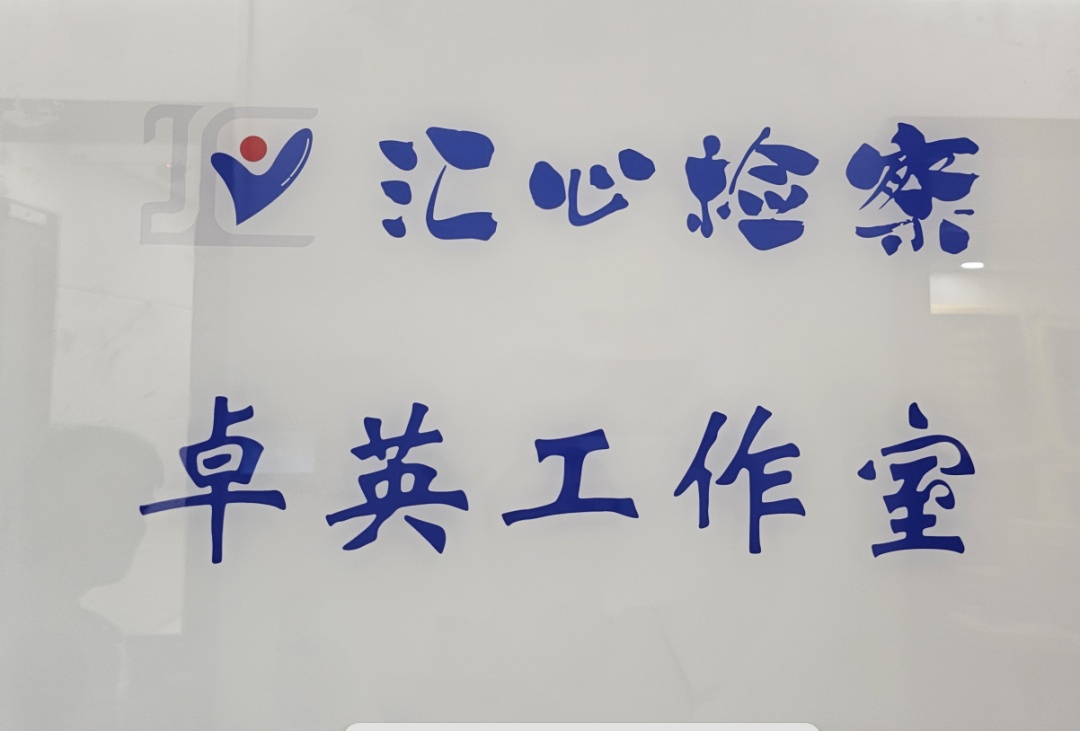 汇心检察
卓英工作室